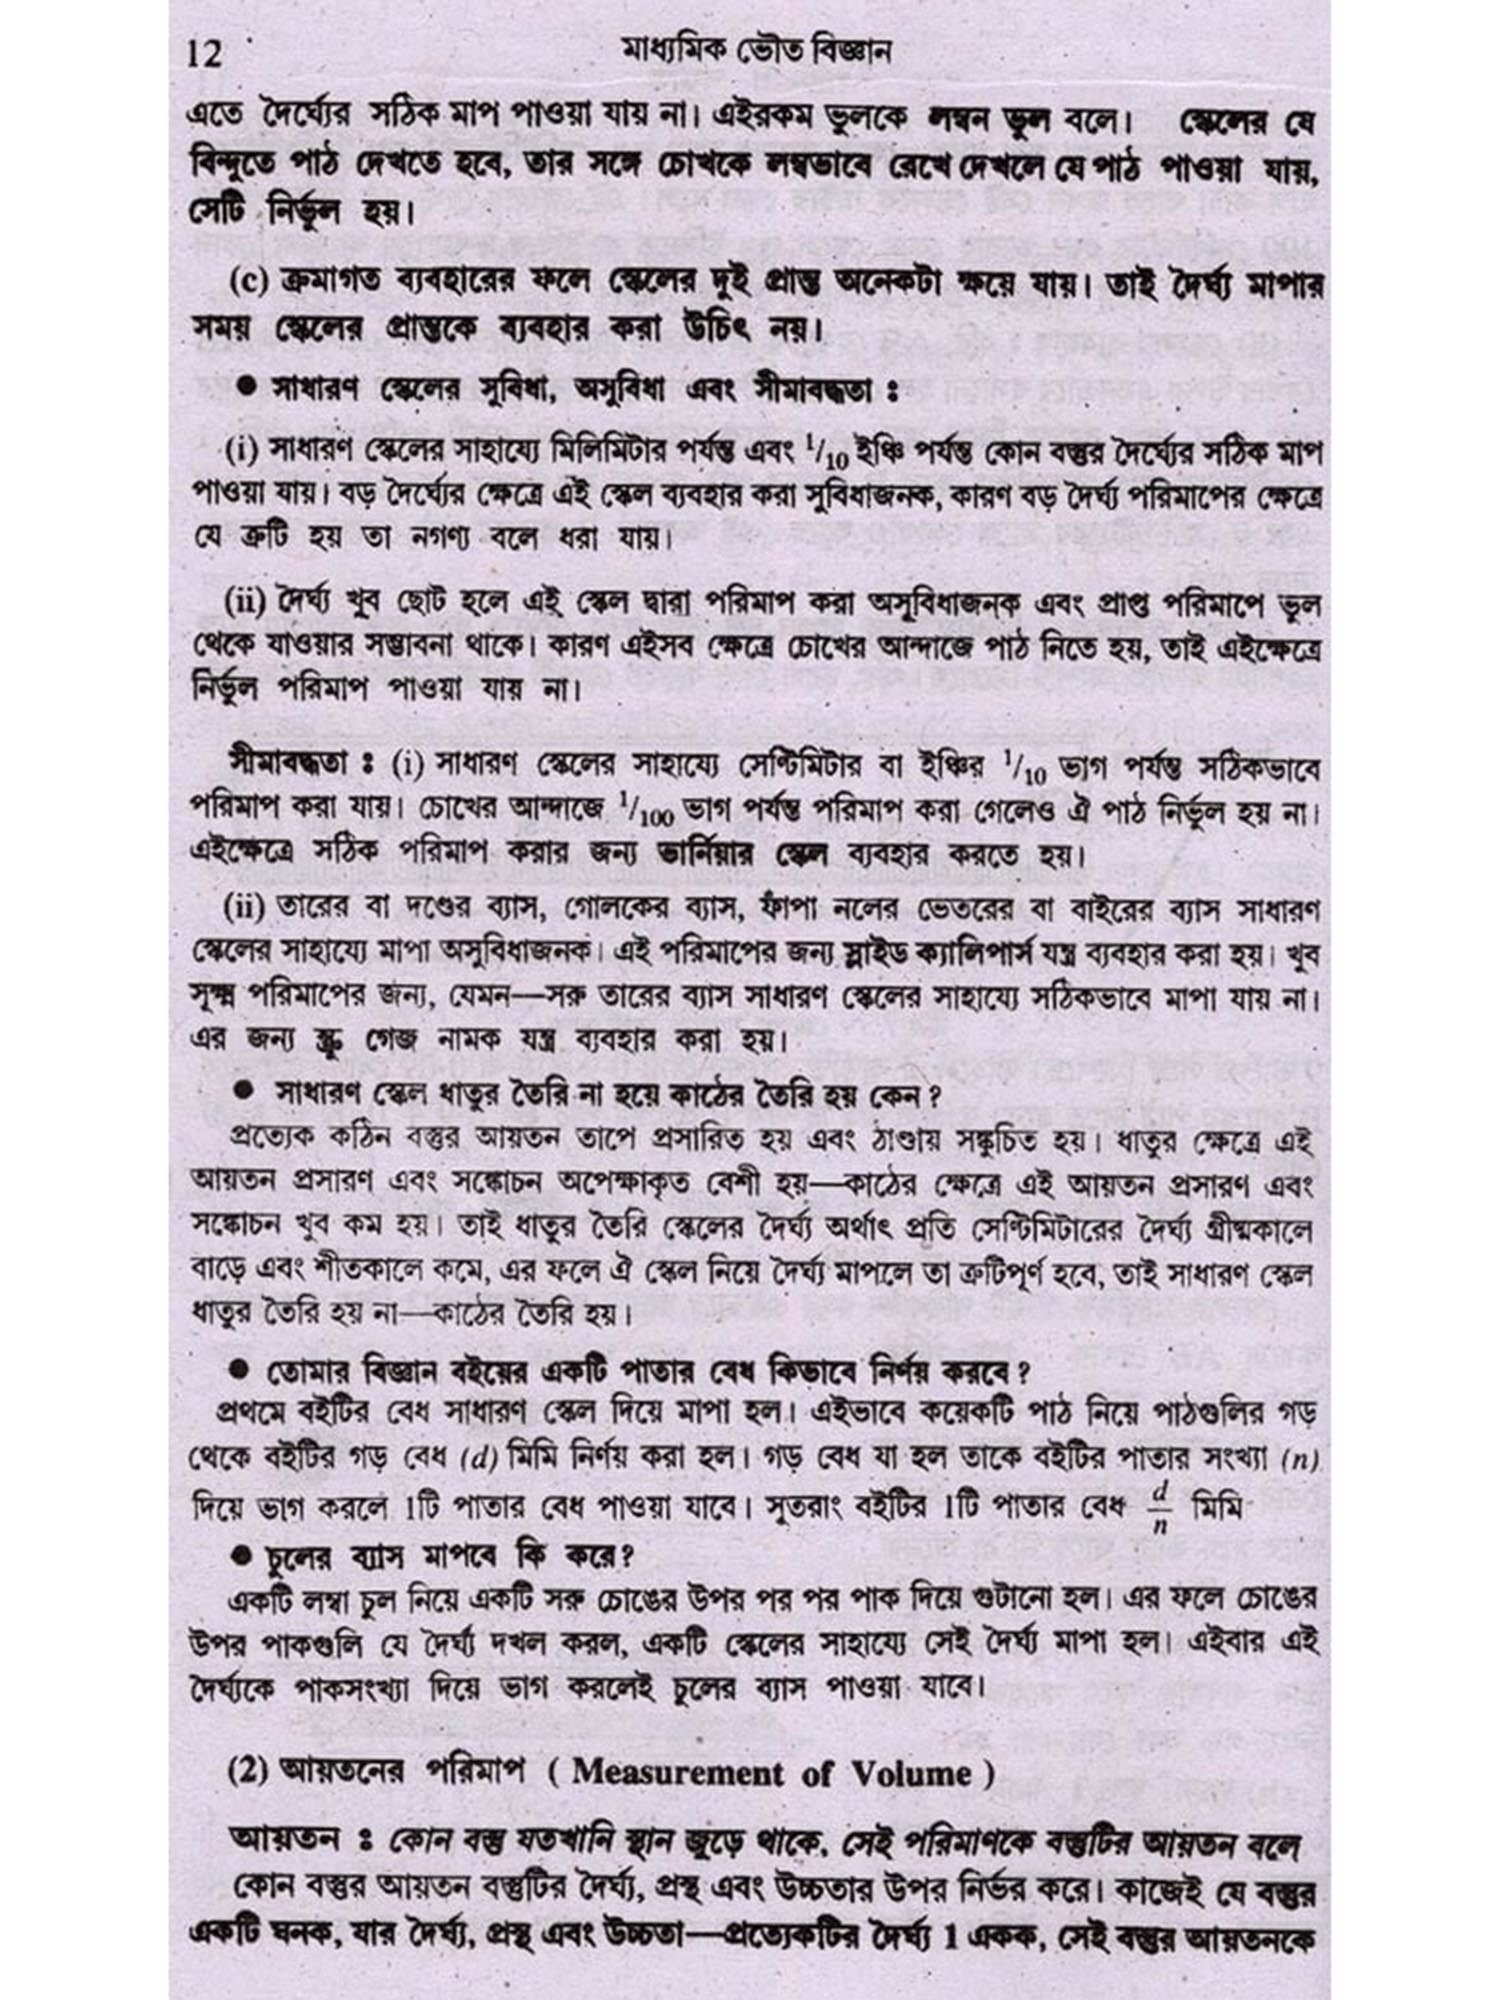 12
মাধ্যমিক ভৌত বিজ্ঞান
এতে দৈর্ঘ্যের সঠিক মাপ পাওয়া যায় না। এইরকম ভুলকে লম্বন ভুল বলে। স্কেলের যে
বিন্দুতে পাঠ দেখতে হবে, তার সঙ্গে চোখকে লম্বভাবে রেখে দেখলে যে পাঠ পাওয়া যায়,
সেটি নির্ভুল হয়।
(c) ক্রমাগত ব্যবহারের ফলে স্কেলের দুই প্রান্ত অনেকটা ক্ষয়ে যায়। তাই দৈর্ঘ্য মাপার
সময় স্কেলের প্রান্তকে ব্যবহার করা উচিৎ নয়।
● সাধারণ স্কেলের সুবিধা, অসুবিধা এবং সীমাবদ্ধতা :
(i) সাধারণ স্কেলের সাহায্যে মিলিমিটার পর্যন্ত এবং 1/10 ইঞ্চি পর্যন্ত কোন বস্তুর দৈর্ঘ্যের সঠিক মাপ
পাওয়া যায়। বড় দৈর্ঘ্যের ক্ষেত্রে এই স্কেল ব্যবহার করা সুবিধাজনক, কারণ বড় দৈর্ঘ্য পরিমাপের ক্ষেত্রে
যে ত্রুটি হয় তা নগণ্য বলে ধরা যায়।
(ii) দৈর্ঘ্য খুব ছোট হলে এই স্কেল দ্বারা পরিমাপ করা অসুবিধাজনক এবং প্রাপ্ত পরিমাপে ভুল
থেকে যাওয়ার সম্ভাবনা থাকে। কারণ এইসব ক্ষেত্রে চোখের আন্দাজে পাঠ নিতে হয়, তাই এইক্ষেত্রে
নির্ভুল পরিমাপ পাওয়া যায় না।
সীমাবদ্ধতা : (i) সাধারণ স্কেলের সাহায্যে সেণ্টিমিটার বা ইঞ্চির 1/10 ভাগ পর্যন্ত সঠিকভাবে
পরিমাপ করা যায়। চোখের আন্দাজে 1/100 ভাগ পর্যন্ত পরিমাপ করা গেলেও ঐ পাঠ নির্ভুল হয় না।
এইক্ষেত্রে সঠিক পরিমাপ করার জন্য ভার্নিয়ার স্কেল ব্যবহার করতে হয়।
(ii) তারের বা দণ্ডের ব্যাস, গোলকের ব্যাস, ফাঁপা নলের ভেতরের বা বাইরের ব্যাস সাধারণ
স্কেলের সাহায্যে মাপা অসুবিধাজনক। এই পরিমাপের জন্য স্লাইড ক্যালিপার্স যন্ত্র ব্যবহার করা হয়। খুব
সূক্ষ্ম পরিমাপের জন্য, যেমন—সরু তারের ব্যাস সাধারণ স্কেলের সাহায্যে সঠিকভাবে মাপা যায় না।
এর জন্য স্ক্রু গেজ নামক যন্ত্র ব্যবহার করা হয়।
● সাধারণ স্কেল ধাতুর তৈরি না হয়ে কাঠের তৈরি হয় কেন?
প্রত্যেক কঠিন বস্তুর আয়তন তাপে প্রসারিত হয় এবং ঠাণ্ডায় সঙ্কুচিত হয়। ধাতুর ক্ষেত্রে এই
আয়তন প্রসারণ এবং সঙ্কোচন অপেক্ষাকৃত বেশী হয়—কাঠের ক্ষেত্রে এই আয়তন প্রসারণ এবং
সঙ্কোচন খুব কম হয়। তাই ধাতুর তৈরি স্কেলের দৈর্ঘ্য অর্থাৎ প্রতি সেণ্টিমিটারের দৈর্ঘ্য গ্রীষ্মকালে
বাড়ে এবং শীতকালে কমে, এর ফলে ঐ স্কেল নিয়ে দৈর্ঘ্য মাপলে তা ত্রুটিপূর্ণ হবে, তাই সাধারণ স্কেল
ধাতুর তৈরি হয় না—কাঠের তৈরি হয়।
● তোমার বিজ্ঞান বইয়ের একটি পাতার বেধ কিভাবে নির্ণয় করবে?
প্রথমে বইটির বেধ সাধারণ স্কেল দিয়ে মাপা হল। এইভাবে কয়েকটি পাঠ নিয়ে পাঠগুলির গড়
থেকে বইটির গড় বেধ (d) মিমি নির্ণয় করা হল। গড় বেধ যা হল তাকে বইটির পাতার সংখ্যা (n)
দিয়ে ভাগ করলে 1টি পাতার বেধ পাওয়া যাবে। সুতরাং বইটির 1টি পাতার বেধ d/n মিমি
● চুলের ব্যাস মাপবে কি করে?
একটি লম্বা চুল নিয়ে একটি সরু চোঙের উপর পর পর পাক দিয়ে গুটানো হল। এর ফলে চোঙের
উপর পাকগুলি যে দৈর্ঘ্য দখল করল, একটি স্কেলের সাহায্যে সেই দৈর্ঘ্য মাপা হল। এইবার এই
দৈর্ঘ্যকে পাকসংখ্যা দিয়ে ভাগ করলেই চুলের ব্যাস পাওয়া যাবে।
(2) আয়তনের পরিমাপ ( Measurement of Volume )
আয়তন : কোন বস্তু যতখানি স্থান জুড়ে থাকে, সেই পরিমাণকে বস্তুটির আয়তন বলে
কোন বস্তুর আয়তন বস্তুটির দৈর্ঘ্য, প্রস্থ এবং উচ্চতার উপর নির্ভর করে। কাজেই যে বস্তুর
একটি ঘনক, যার দৈর্ঘ্য, প্রস্থ এবং উচ্চতা—প্রত্যেকটির দৈর্ঘ্য 1 একক, সেই বস্তুর আয়তনকে